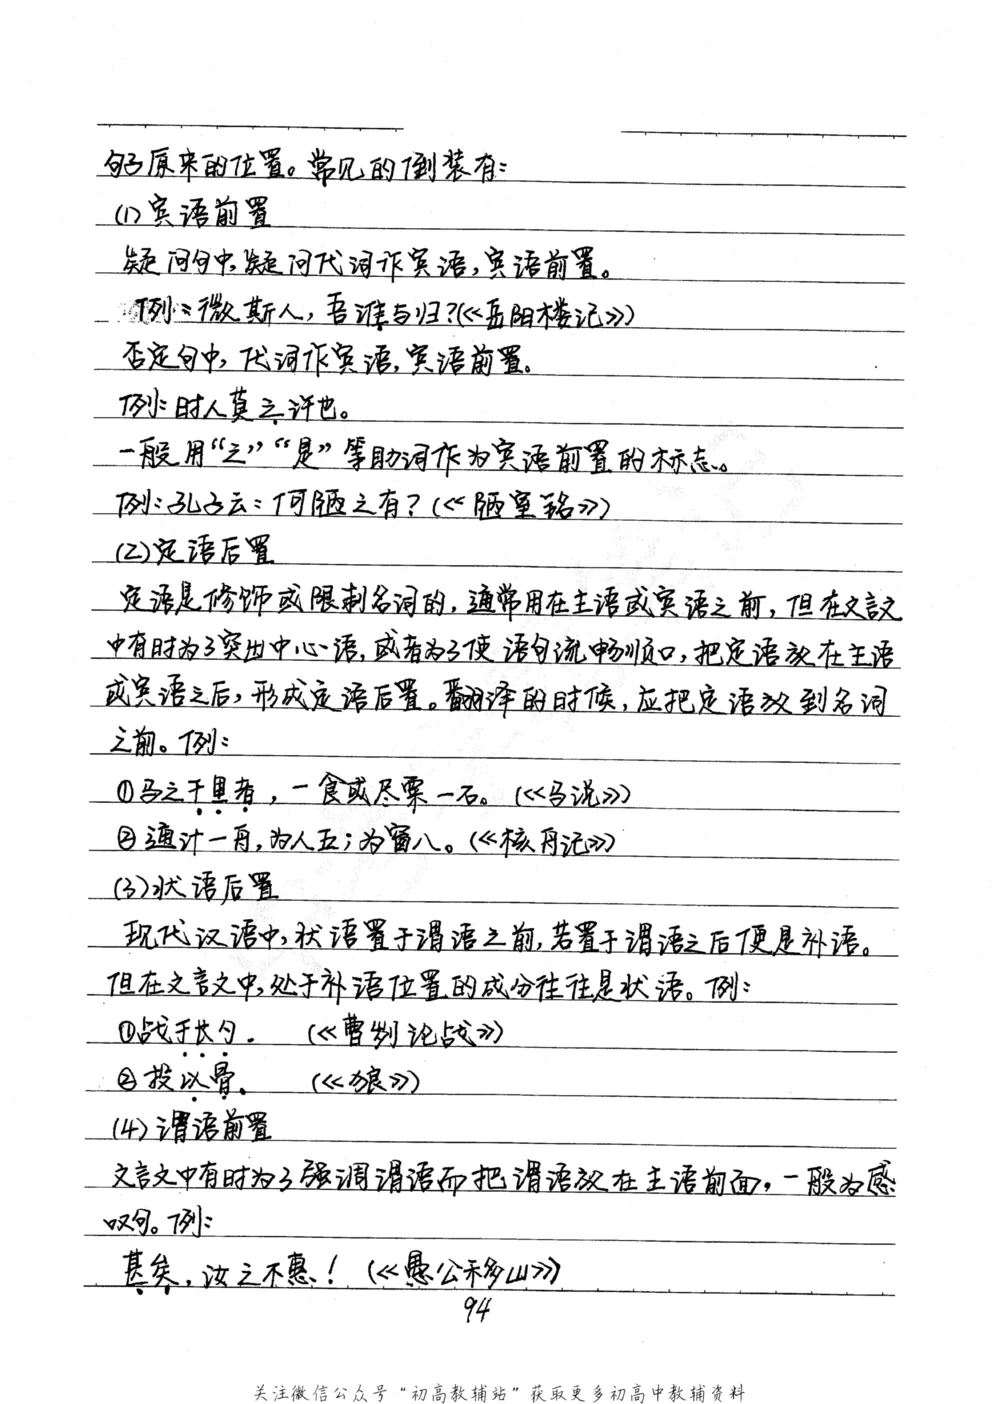 句子原来的位置。常见的倒装有：
(1)宾语前置
疑问句中，疑问代词作宾语，宾语前置。
例：微斯人，吾谁与归？(《岳阳楼记》)
否定句中，代词作宾语，宾语前置。
例：时人莫之许也。
一般用“之”“是”等助词作为宾语前置的标志。
例：孔子云：何陋之有？(《陋室铭》)
(2)定语后置
定语是修饰或限制名词的，通常用在主语或宾语之前，但在文言文
中有时为了突出中心语，或者为了使语句流畅顺口，把定语放在主语
或宾语之后，形成定语后置。翻译的时候，应把定语放到名词
之前。例：
①马之千里者，一食或尽粟一石。(《马说》)
②通计一舟，为人五；为窗八。(《核舟记》)
(3)状语后置
现代汉语中，状语置于谓语之前，若置于谓语之后便是补语。
但在文言文中，处于补语位置的成分往往是状语。例：
①战于长勺。 (《曹刿论战》)
②投以骨。 (《狼》)
(4)谓语前置
文言文中有时为了强调谓语而把谓语放在主语前面，一般为感
叹句。例：
甚矣，汝之不惠！(《愚公移山》)
94
关注微信公众号“初高教辅站”获取更多初高中教辅资料